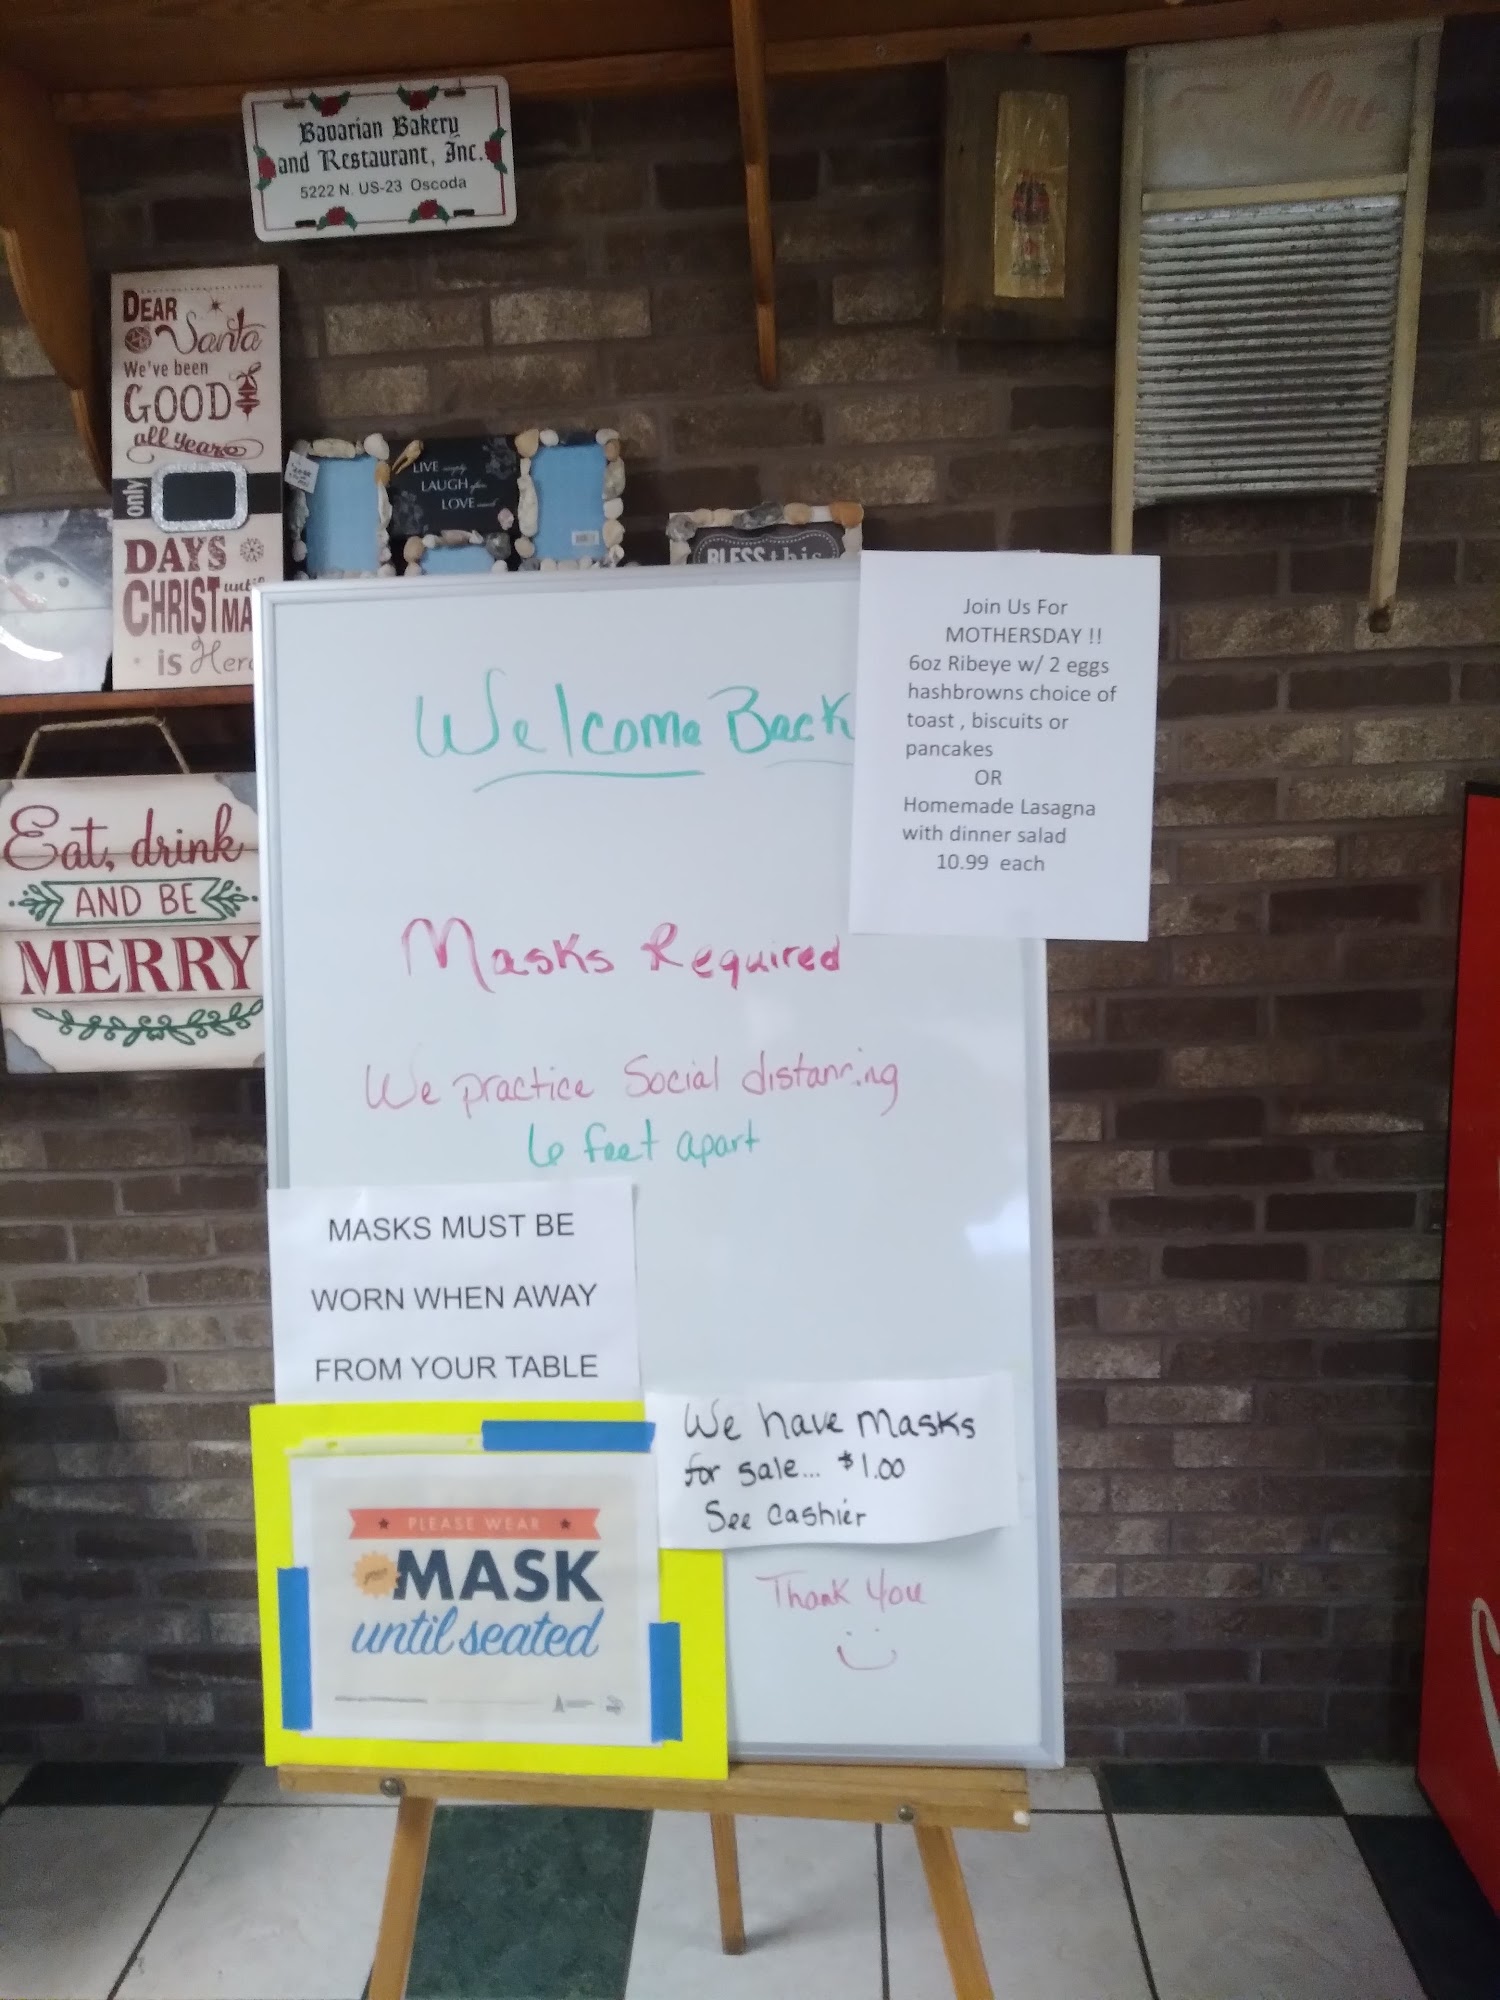 Bavarian Bakery
and Restaurant, Inc.
5222 N. US-23 Oscoda
DEAR
Santa
We've been
GOOD
all year
only
DAYS
until
CHRISTMA
is Here
LIVE simply
LAUGH
LOVE
BLESS this
Eat, drink
AND BE
MERRY
Welcome Back
Join Us For
MOTHERSDAY !!
6oz Ribeye w/ 2 eggs
hashbrowns choice of
toast , biscuits or
pancakes
OR
Homemade Lasagna
with dinner salad
10.99 each
Masks Required
We practice Social distancing
6 feet apart
MASKS MUST BE
WORN WHEN AWAY
FROM YOUR TABLE
We have masks
for sale... $1.00
See Cashier
PLEASE WEAR
your MASK
until seated
Thank You